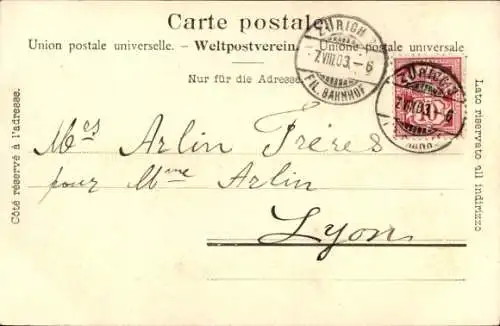 Carte postale
Union postale universelle. – Weltpostverein. – Unione postale universale
Nur für die Adresse.
ZÜRICH
7.VIII.03.–6
FIL. BAHNHOF
ZÜRICH
7.VIII.03.–6
10
Côté réservé à l'adresse.
Lato riservato all indirizzo
Mrs Arlin Frères
pour Mme Arlin
Lyon